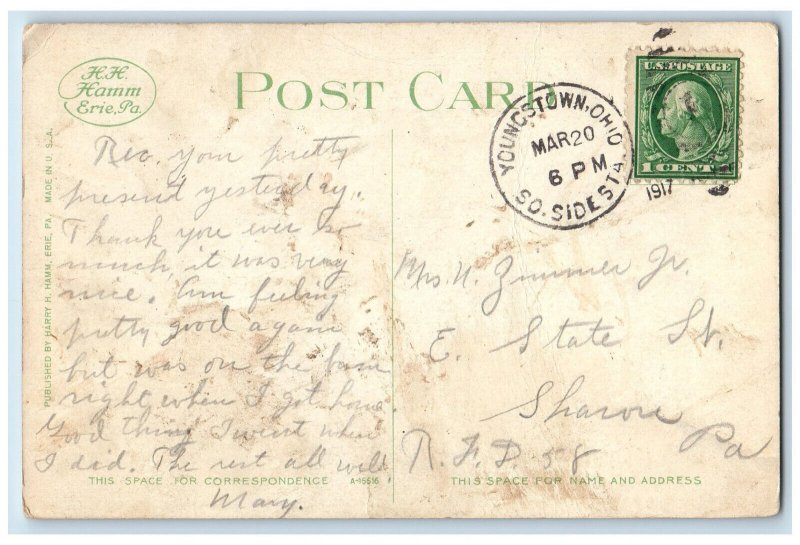 H.H.
Hamm
Erie, Pa.
POST CARD
U.S. POSTAGE
1 CENT
YOUNGSTOWN, OHIO
MAR 20
6 PM
1917
SO. SIDE STA.
PUBLISHED BY HARRY H. HAMM, ERIE, PA. MADE IN U. S. A.
Rec. your pretty
present yesterday.
Thank you ever so
much, it was very
nice. Am feeling
pretty good again
but was on the
right when I got home
Good thing I went when
I did. The rest all well
Mary.
Mrs. N. Zimmer Jr.
E. State St.
Sharon Pa
R. F. D. 58
THIS SPACE FOR CORRESPONDENCE
A-15516
THIS SPACE FOR NAME AND ADDRESS